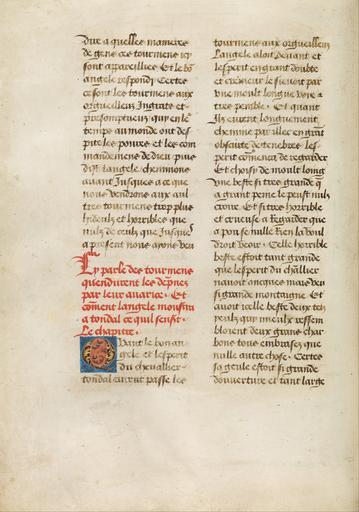 dire a quelles manieres
de gens ces tourmens icy
sont appareilliez Et le bō
angele respondy Certes
ce sont les tourmens aux
orgueilleux Ingratz et
presumptueux qui en le
temps au monde ont des
pite les poures et les com
mandemens de dieu Puis
dist langele cheminons
auant Jusques a ce que
nous vendrons aux aul
tres tourmens trop plus
hydeulx et horribles que
nulz de ceulx que Jusques
a present nous ayons veu
Cy parle des tourmens
quendurent les dampnez
par leur auarice. Et
cōment langele monstra
a tondal ce quil sensit.
Le chapitre.
Quant le bon an
gele et lesperit
du cheuallier
tondal eurent passe les
tourmens aux orgueilleux
Langele aloit deuant et
lesperit en grant doubte
et cremeur le sieuoit par
vne moult longue voye et
tres penible. Et quant
Ilz eurent longuement
chemine par illec en grāt
obscurte de tenebres les
perit cōmenca de regarder
Et choisy de moult loing
vne beste si tres grande q̄
a grant peine le peust nulz
croire Et si tres horrible
et crueuse a Regarder que
a pou se nulle Rien la voul
droit veoir. Celle horrible
beste estoit tant grande
que lesperit du cheuallier
nauoit oncques mais veu
si grande montaigne Et
auoit icelle beste deux tez
yeulx qui mieulx ressem
bloient deux grans char
bons tous embrasez que
nulle autre chose. Certes
sa geule estoit si grande
douuerture et tant large